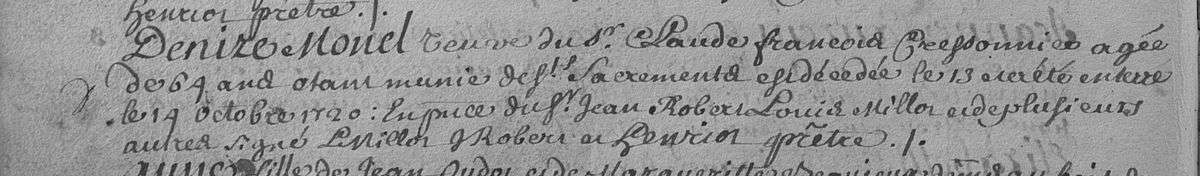 henrion prêtre ./.
Denize Monel veuve du Sr. Claude françois Cressonnier agée
de 64 ans etant munie des Sts Sacrements est décedée le 13 et eté enterré
le 14 octobre 1720 : En pnce du Sr Jean Robert Louis Millot et de plusieurs
autres signé L Millot J Robert et henrion prêtre ./.
fille de Jean et de Margueritte